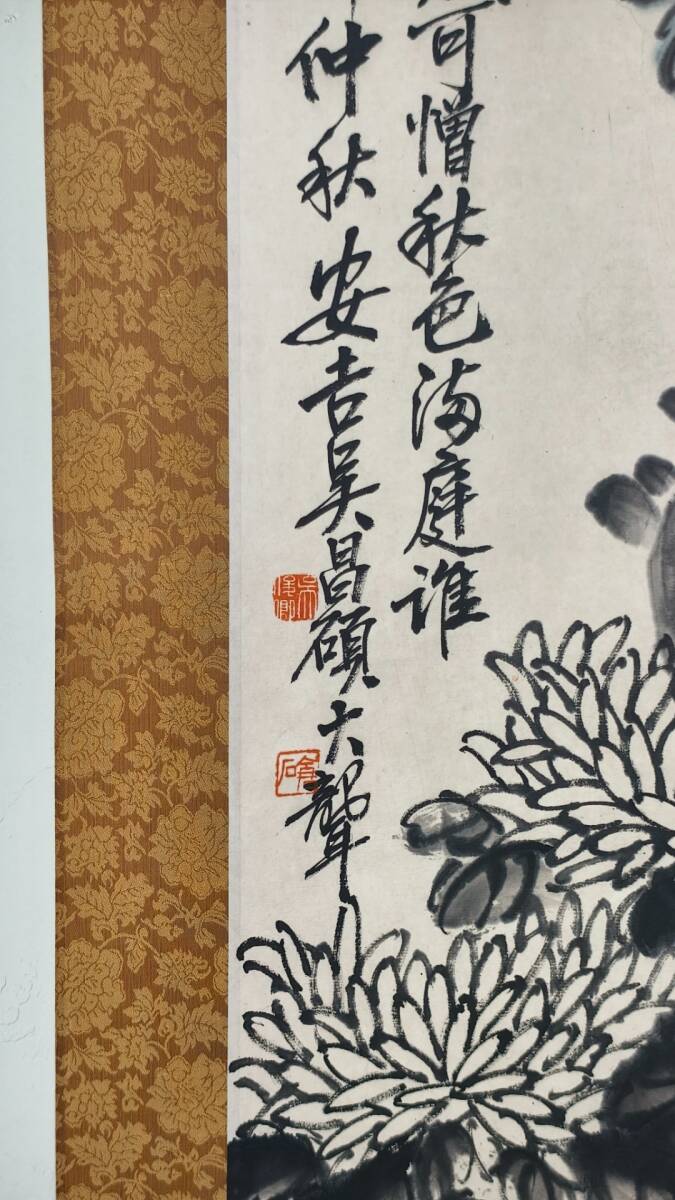 可憎秋色满庭谁
仲秋安吉吴昌硕大聋